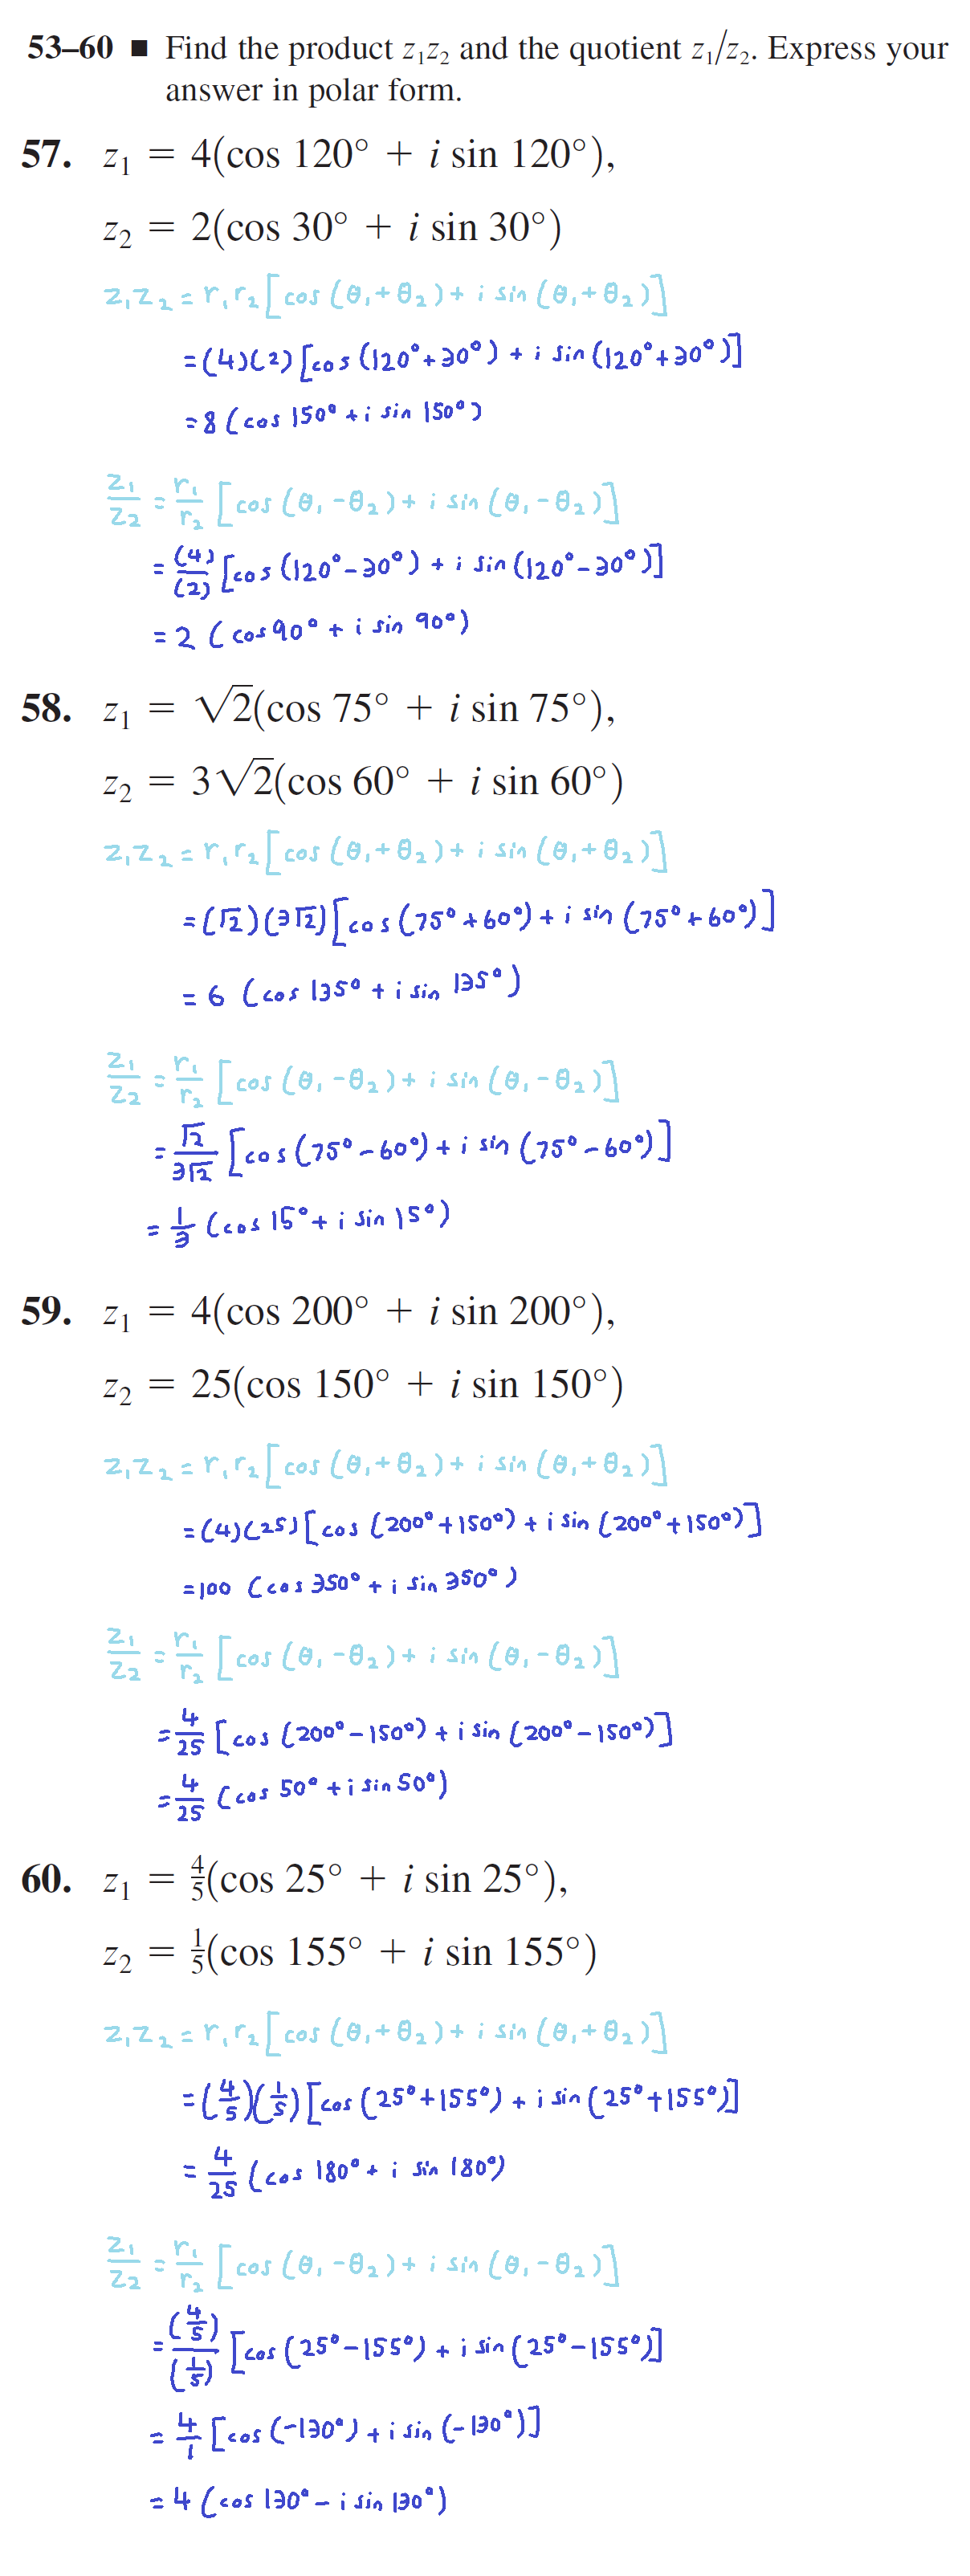 53–60 ■ Find the product z₁z₂ and the quotient z₁/z₂. Express your
answer in polar form.
57. z₁ = 4(cos 120° + i sin 120°),
z₂ = 2(cos 30° + i sin 30°)
z₁z₂ = r₁r₂[cos(θ₁+θ₂)+ i sin(θ₁+θ₂)]
=(4)(2)[cos(120°+30°) + i sin(120°+30°)]
=8(cos 150° + i sin 150°)
z₁/z₂ = r₁/r₂ [cos(θ₁-θ₂)+ i sin(θ₁-θ₂)]
= (4)/(2) [cos(120°-30°) + i sin(120°-30°)]
= 2 (cos 90° + i sin 90°)
58. z₁ = √2(cos 75° + i sin 75°),
z₂ = 3√2(cos 60° + i sin 60°)
z₁z₂ = r₁r₂[cos(θ₁+θ₂)+ i sin(θ₁+θ₂)]
=(√2)(3√2)[cos(75°+60°) + i sin(75°+60°)]
= 6 (cos 135° + i sin 135°)
z₁/z₂ = r₁/r₂ [cos(θ₁-θ₂)+ i sin(θ₁-θ₂)]
= √2/3√2 [cos(75°-60°) + i sin(75°-60°)]
= 1/3 (cos 15° + i sin 15°)
59. z₁ = 4(cos 200° + i sin 200°),
z₂ = 25(cos 150° + i sin 150°)
z₁z₂ = r₁r₂[cos(θ₁+θ₂)+ i sin(θ₁+θ₂)]
=(4)(25)[cos(200°+150°) + i sin(200°+150°)]
=100 (cos 350° + i sin 350°)
z₁/z₂ = r₁/r₂ [cos(θ₁-θ₂)+ i sin(θ₁-θ₂)]
= 4/25 [cos(200°-150°) + i sin(200°-150°)]
= 4/25 (cos 50° + i sin 50°)
60. z₁ = 4/5(cos 25° + i sin 25°),
z₂ = 1/5(cos 155° + i sin 155°)
z₁z₂ = r₁r₂[cos(θ₁+θ₂)+ i sin(θ₁+θ₂)]
=(4/5)(1/5)[cos(25°+155°) + i sin(25°+155°)]
= 4/25 (cos 180° + i sin 180°)
z₁/z₂ = r₁/r₂ [cos(θ₁-θ₂)+ i sin(θ₁-θ₂)]
= (4/5)/(1/5) [cos(25°-155°) + i sin(25°-155°)]
= 4/1 [cos(-130°) + i sin(-130°)]
= 4 (cos 130° - i sin 130°)